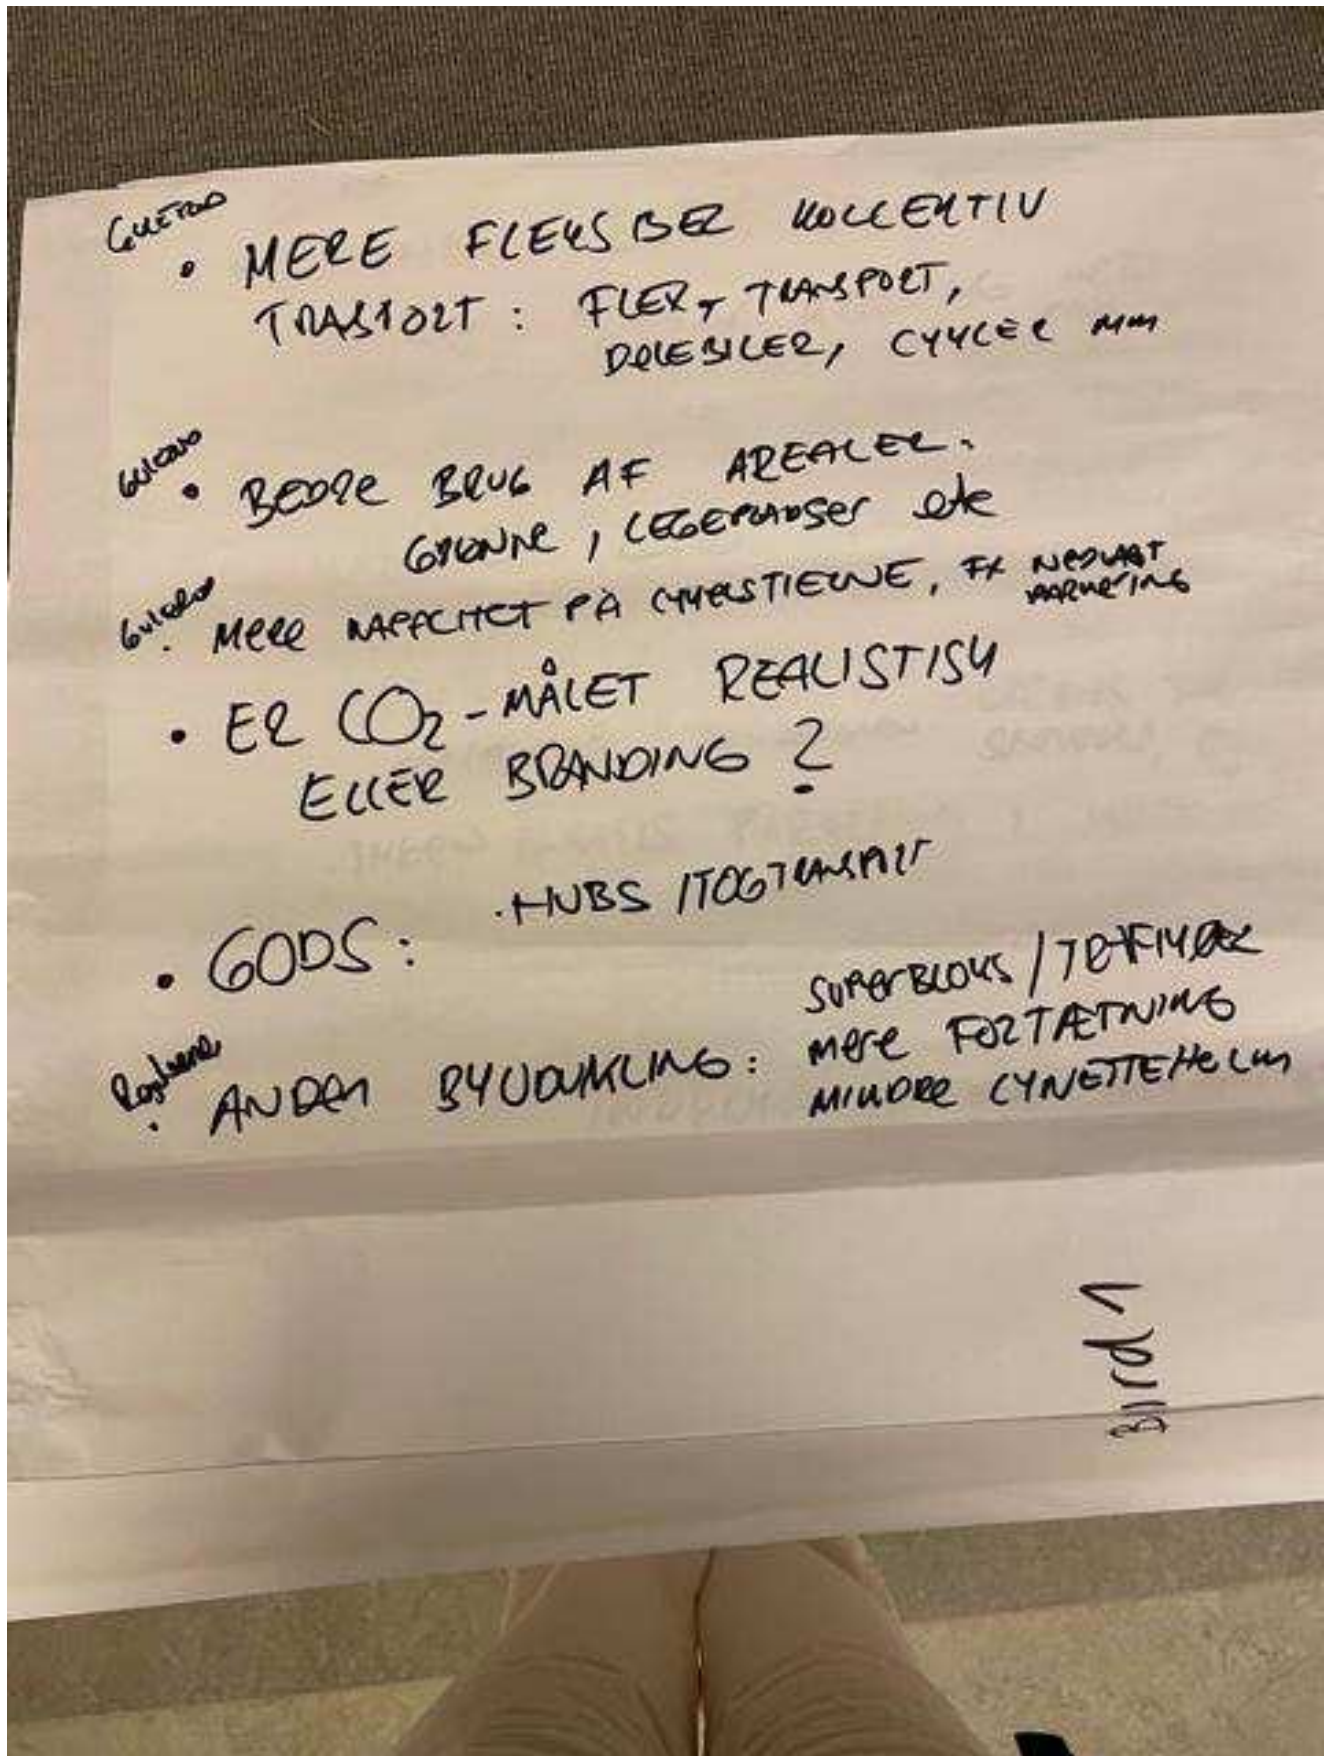 Gulerod
• MERE FLEKSIBEL KOLLEKTIV
TRASPORT: FLEX, TRANSPORT,
DELEBILER, CYKLER MM
Gulerod
• BEDRE BRUG AF AREALER.
GRØNNE, LEGEPLADSER etc
Gulerod
• MERE KAPACITET PÅ CYKELSTIERNE, FX NEDLAGT
PARKERING
• ER CO2-MÅLET REALISTISK
ELLER BRANDING?
• HUBS / TOGTRANSPORT
• GODS:
SUPERBLOKS /
ANDEN BYUDVIKLING: MERE FORTÆTNING
MINDRE LYNETTEHOLM
Bilpl